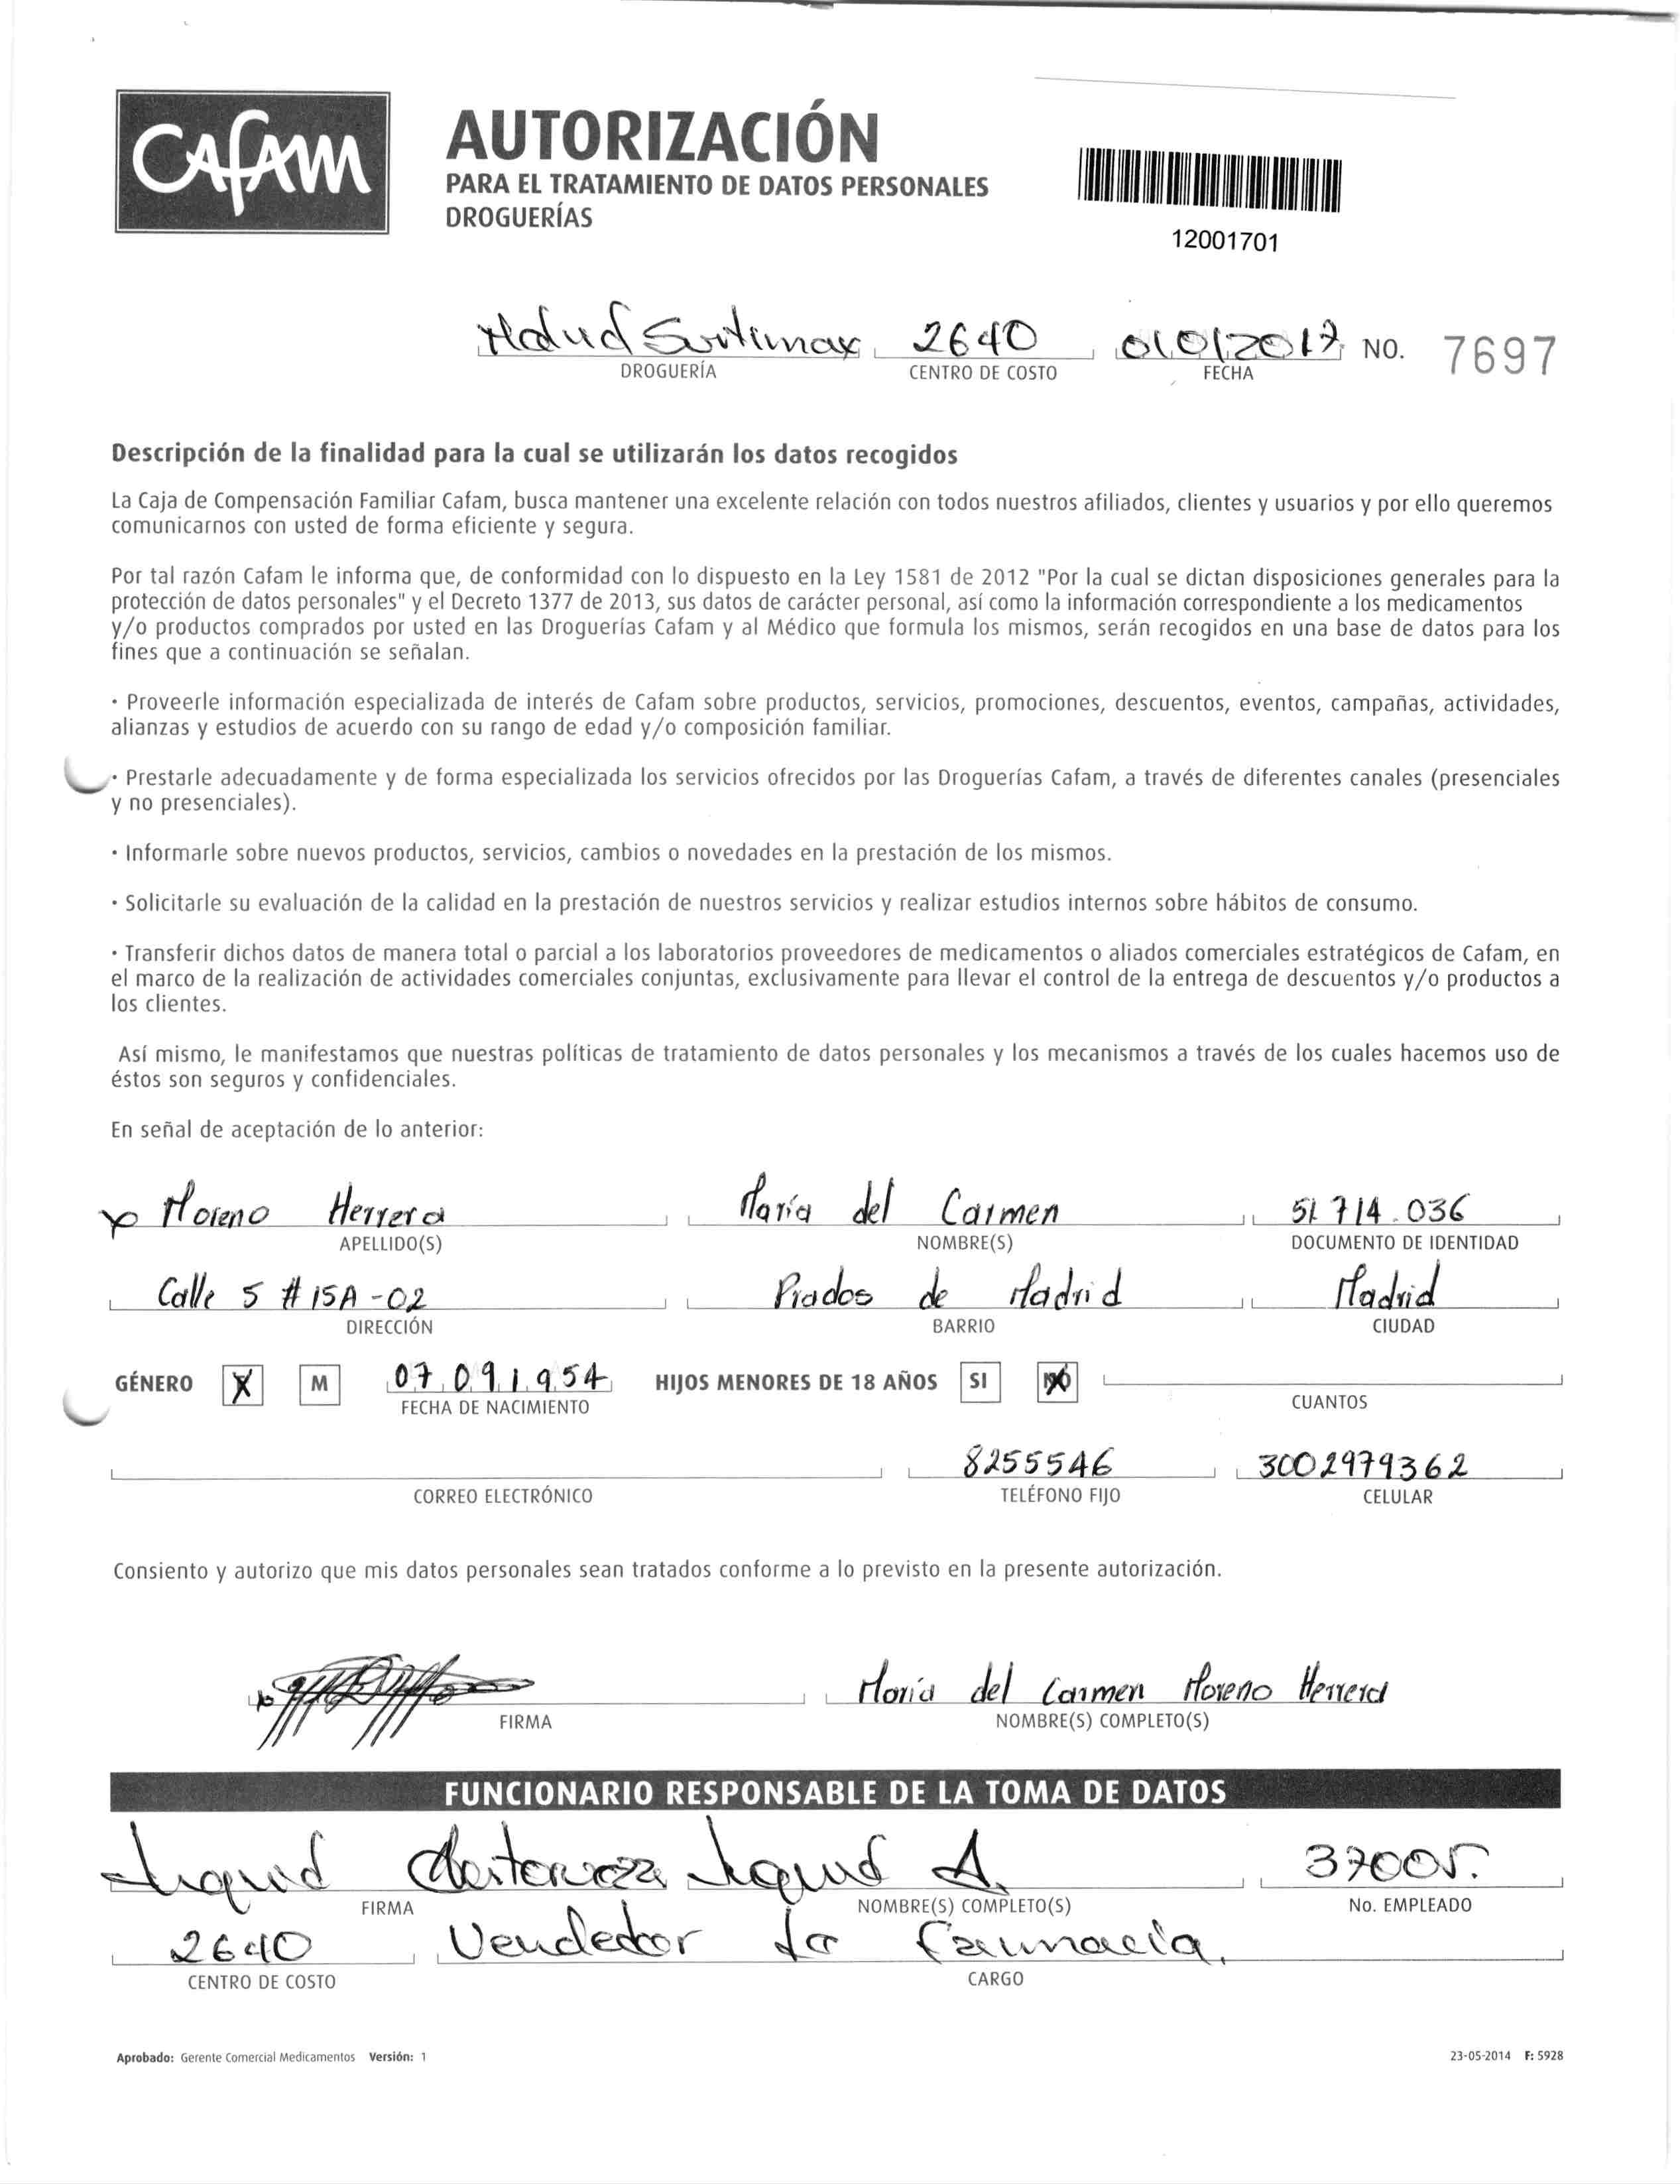 CAFAM
AUTORIZACIÓN
PARA EL TRATAMIENTO DE DATOS PERSONALES
DROGUERÍAS
12001701
Surtimax 2640 01012017 NO. 7697
DROGUERÍA CENTRO DE COSTO FECHA
Descripción de la finalidad para la cual se utilizarán los datos recogidos
La Caja de Compensación Familiar Cafam, busca mantener una excelente relación con todos nuestros afiliados, clientes y usuarios y por ello queremos
comunicarnos con usted de forma eficiente y segura.
Por tal razón Cafam le informa que, de conformidad con lo dispuesto en la Ley 1581 de 2012 "Por la cual se dictan disposiciones generales para la
protección de datos personales" y el Decreto 1377 de 2013, sus datos de carácter personal, así como la información correspondiente a los medicamentos
y/o productos comprados por usted en las Droguerías Cafam y al Médico que formula los mismos, serán recogidos en una base de datos para los
fines que a continuación se señalan.
· Proveerle información especializada de interés de Cafam sobre productos, servicios, promociones, descuentos, eventos, campañas, actividades,
alianzas y estudios de acuerdo con su rango de edad y/o composición familiar.
· Prestarle adecuadamente y de forma especializada los servicios ofrecidos por las Droguerías Cafam, a través de diferentes canales (presenciales
y no presenciales).
· Informarle sobre nuevos productos, servicios, cambios o novedades en la prestación de los mismos.
· Solicitarle su evaluación de la calidad en la prestación de nuestros servicios y realizar estudios internos sobre hábitos de consumo.
· Transferir dichos datos de manera total o parcial a los laboratorios proveedores de medicamentos o aliados comerciales estratégicos de Cafam, en
el marco de la realización de actividades comerciales conjuntas, exclusivamente para llevar el control de la entrega de descuentos y/o productos a
los clientes.
Así mismo, le manifestamos que nuestras políticas de tratamiento de datos personales y los mecanismos a través de los cuales hacemos uso de
éstos son seguros y confidenciales.
En señal de aceptación de lo anterior:
Moreno Herrera María del Carmen 51 714.036
APELLIDO(S) NOMBRE(S) DOCUMENTO DE IDENTIDAD
Calle 5 # 15A - 02 Prados de Madrid Madrid
DIRECCIÓN BARRIO CIUDAD
GÉNERO X M 07 09 1954 HIJOS MENORES DE 18 AÑOS SI NO
FECHA DE NACIMIENTO CUANTOS
8255546 3002979362
CORREO ELECTRÓNICO TELÉFONO FIJO CELULAR
Consiento y autorizo que mis datos personales sean tratados conforme a lo previsto en la presente autorización.
María del Carmen Moreno Herrera
FIRMA NOMBRE(S) COMPLETO(S)
FUNCIONARIO RESPONSABLE DE LA TOMA DE DATOS
A. 37005.
FIRMA NOMBRE(S) COMPLETO(S) No. EMPLEADO
2640 Vendedor Farmacia.
CENTRO DE COSTO CARGO
Aprobado: Gerente Comercial Medicamentos Versión: 1 23-05-2014 F: 5928